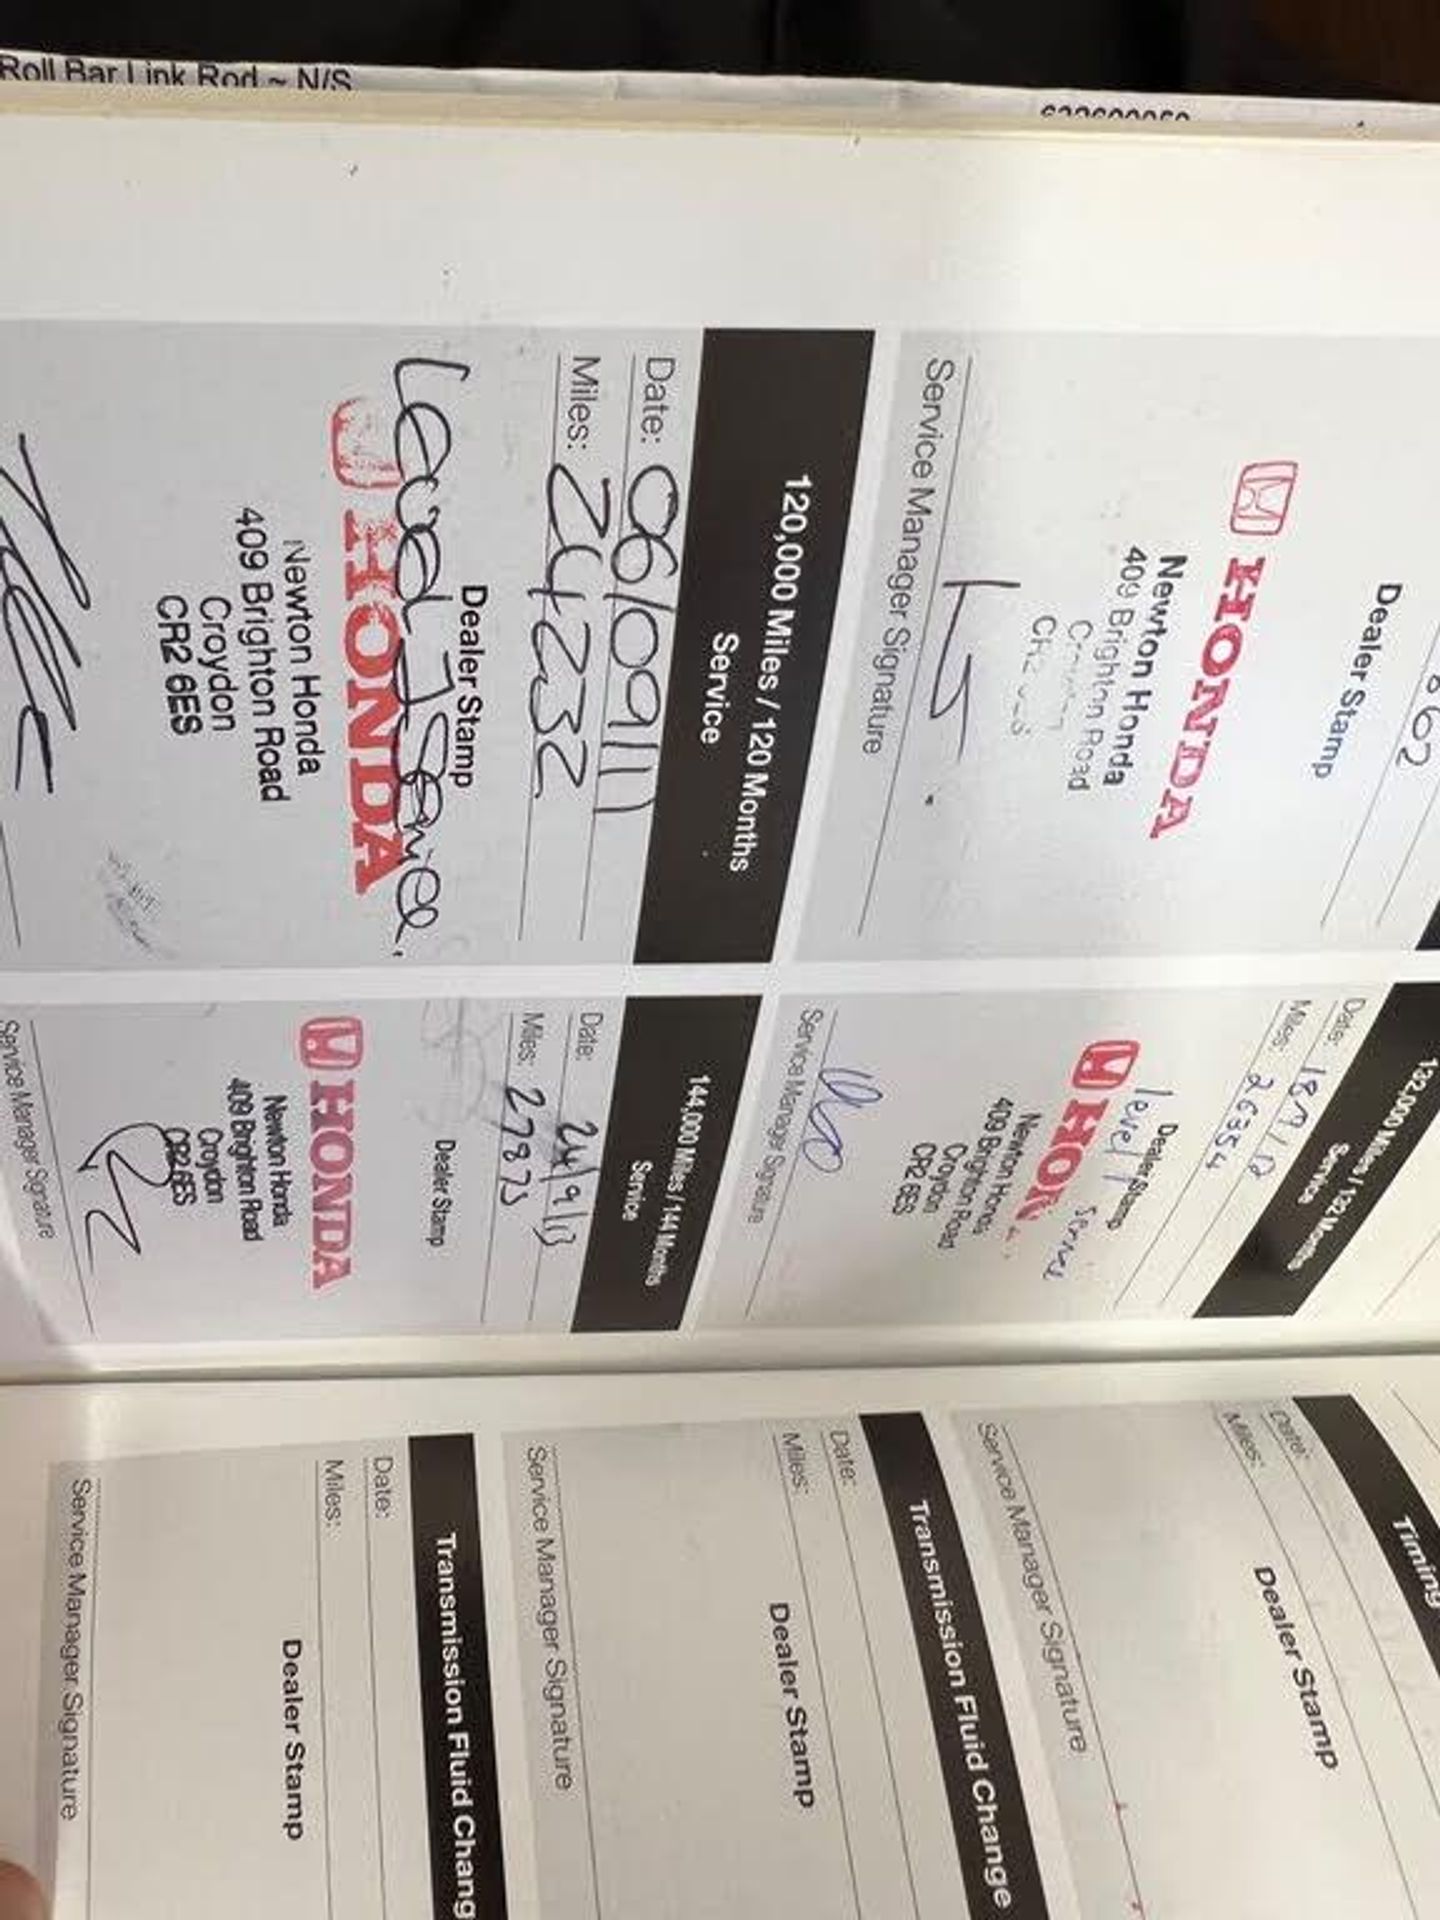 Roll Bar Link Rod ~ N/S
862
Dealer Stamp
HONDA
Newton Honda
409 Brighton Road
Croydon
Service Manager Signature
120,000 Miles / 120 Months
Service
Date: 06/09/11
Miles: 24232
Dealer Stamp
Level 1 Service.
HONDA
Newton Honda
409 Brighton Road
Croydon
CR2 6ES
132,000 Miles / 132 Months
Service
Date:
Miles: 26354
Dealer Stamp
level 1 service
Newton Honda
409 Brighton Road
Croydon
CR2 6ES
Service Manager Signature
144,000 Miles / 144 Months
Service
Date: 24/9/13
Miles: 27875
Dealer Stamp
HONDA
Newton Honda
409 Brighton Road
Croydon
CR2 6ES
Service Manager Signature
Timing
Date:
Miles:
Dealer Stamp
Service Manager Signature
Transmission Fluid Change
Date:
Miles:
Dealer Stamp
Service Manager Signature
Transmission Fluid Chang
Date:
Miles:
Dealer Stamp
Service Manager Signature